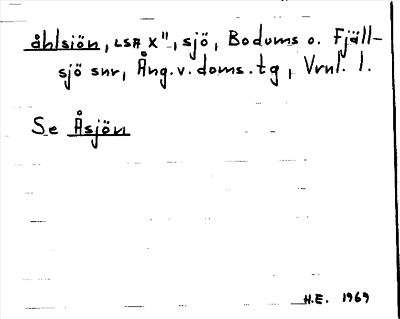 åhlsiön, LSA X", sjö, Bodums o. Fjäll-
sjö snr, Ång.v.doms.tg, Vrnl. l.
Se Åsjön
H.E. 1969